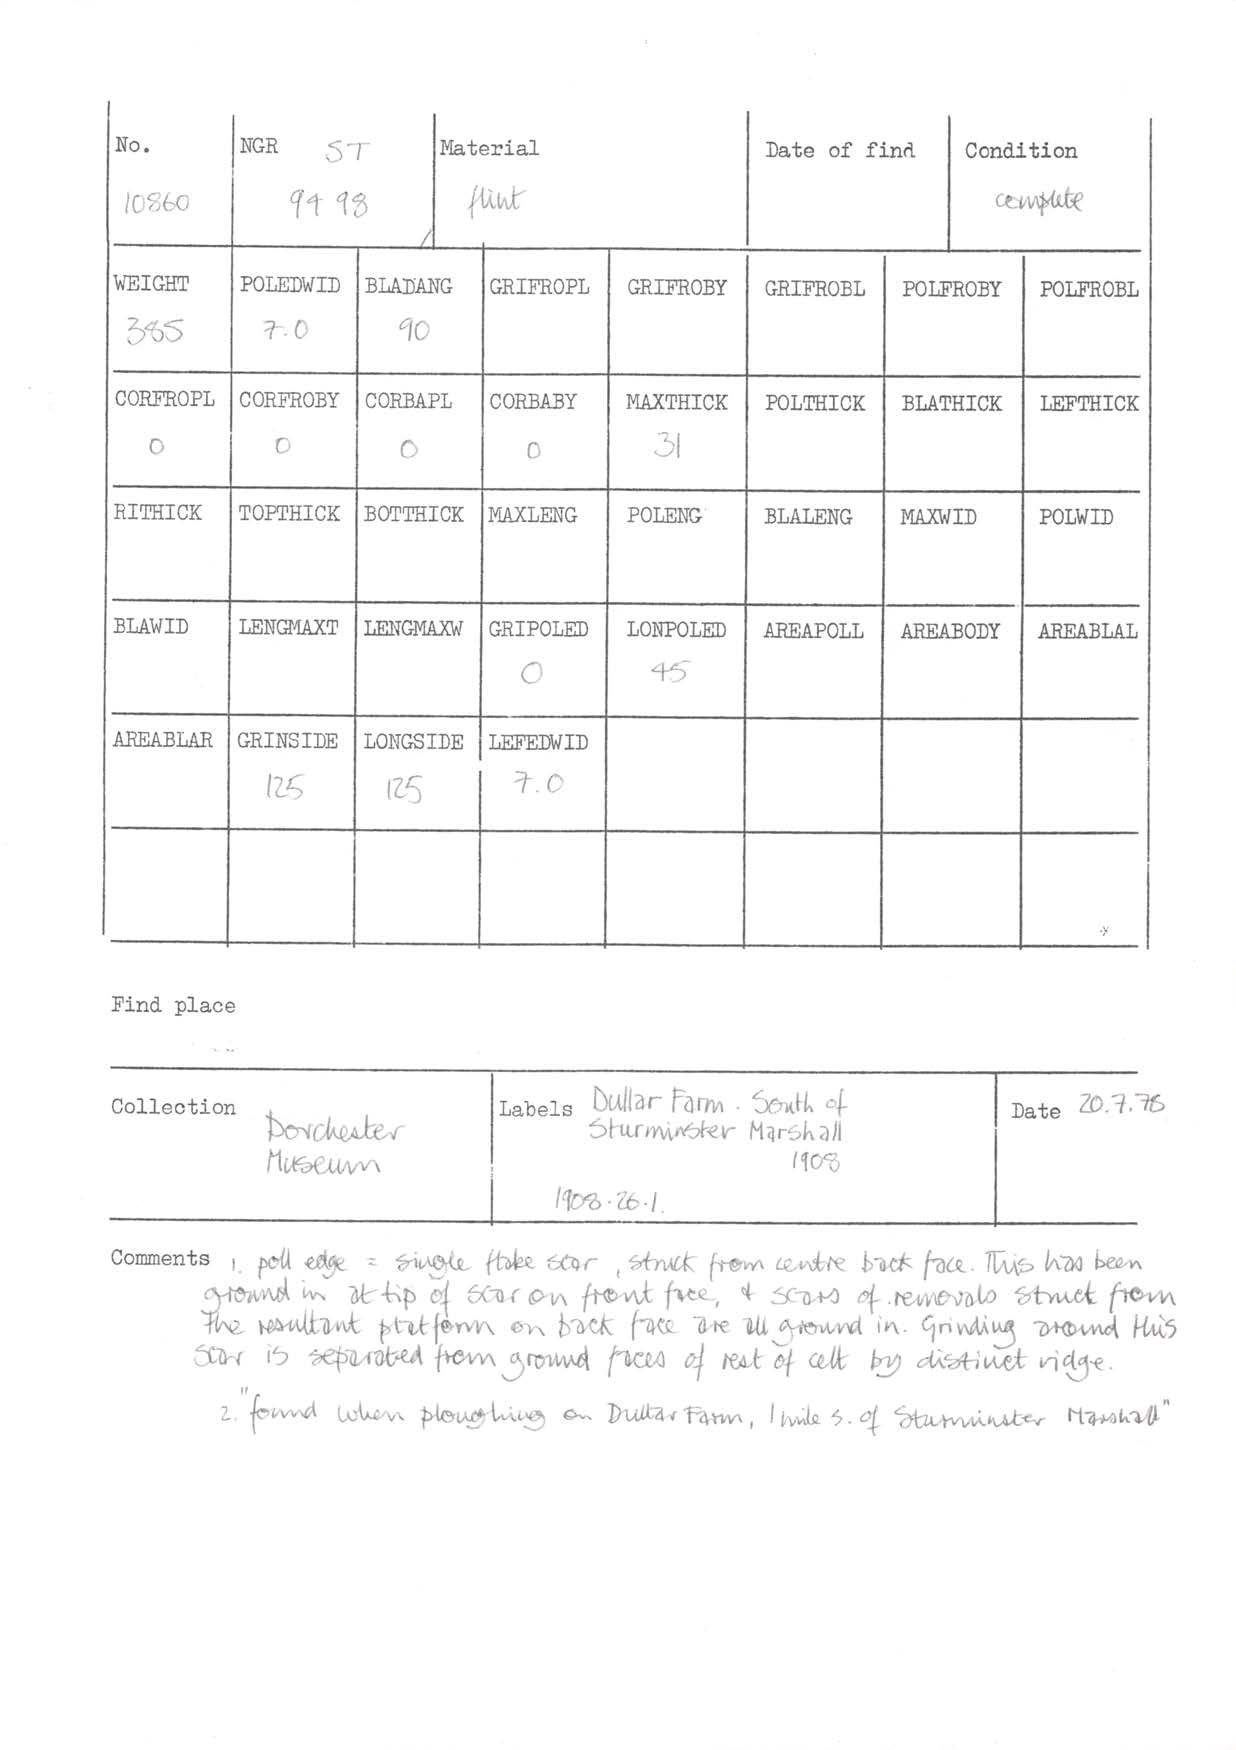 No. NGR ST Material Date of find Condition
10860 94 98 flint complete
WEIGHT POLEDWID BLADANG GRIFROPL GRIFROBY GRIFROBL POLFROBY POLFROBL
385 7.0 90
CORFROPL CORFROBY CORBAPL CORBABY MAXTHICK POLTHICK BLATHICK LEFTHICK
0 0 0 0 31
RITHICK TOPTHICK BOTTHICK MAXLENG POLENG BLALENG MAXWID POLWID
BLAWID LENGMAXT LENGMAXW GRIPOLED LONPOLED AREAPOLL AREABODY AREABLAL
0 45
AREABLAR GRINSIDE LONGSIDE LEFEDWID
125 125 7.0
Find place
Collection Dorchester
Museum
Labels Dullar Farm. South of
Sturminster Marshall
1908
1908.26.1.
Date 20.7.78
Comments 1. poll edge = single flake scar, struck from centre back face. This has been
ground in at tip of scar on front face, & scars of removals struck from
the resultant platform on back face are all ground in. Grinding around this
scar is separated from ground faces of rest of celt by distinct ridge.
2. "found when ploughing on Dullar Farm, 1 mile S. of Sturminster Marshall"